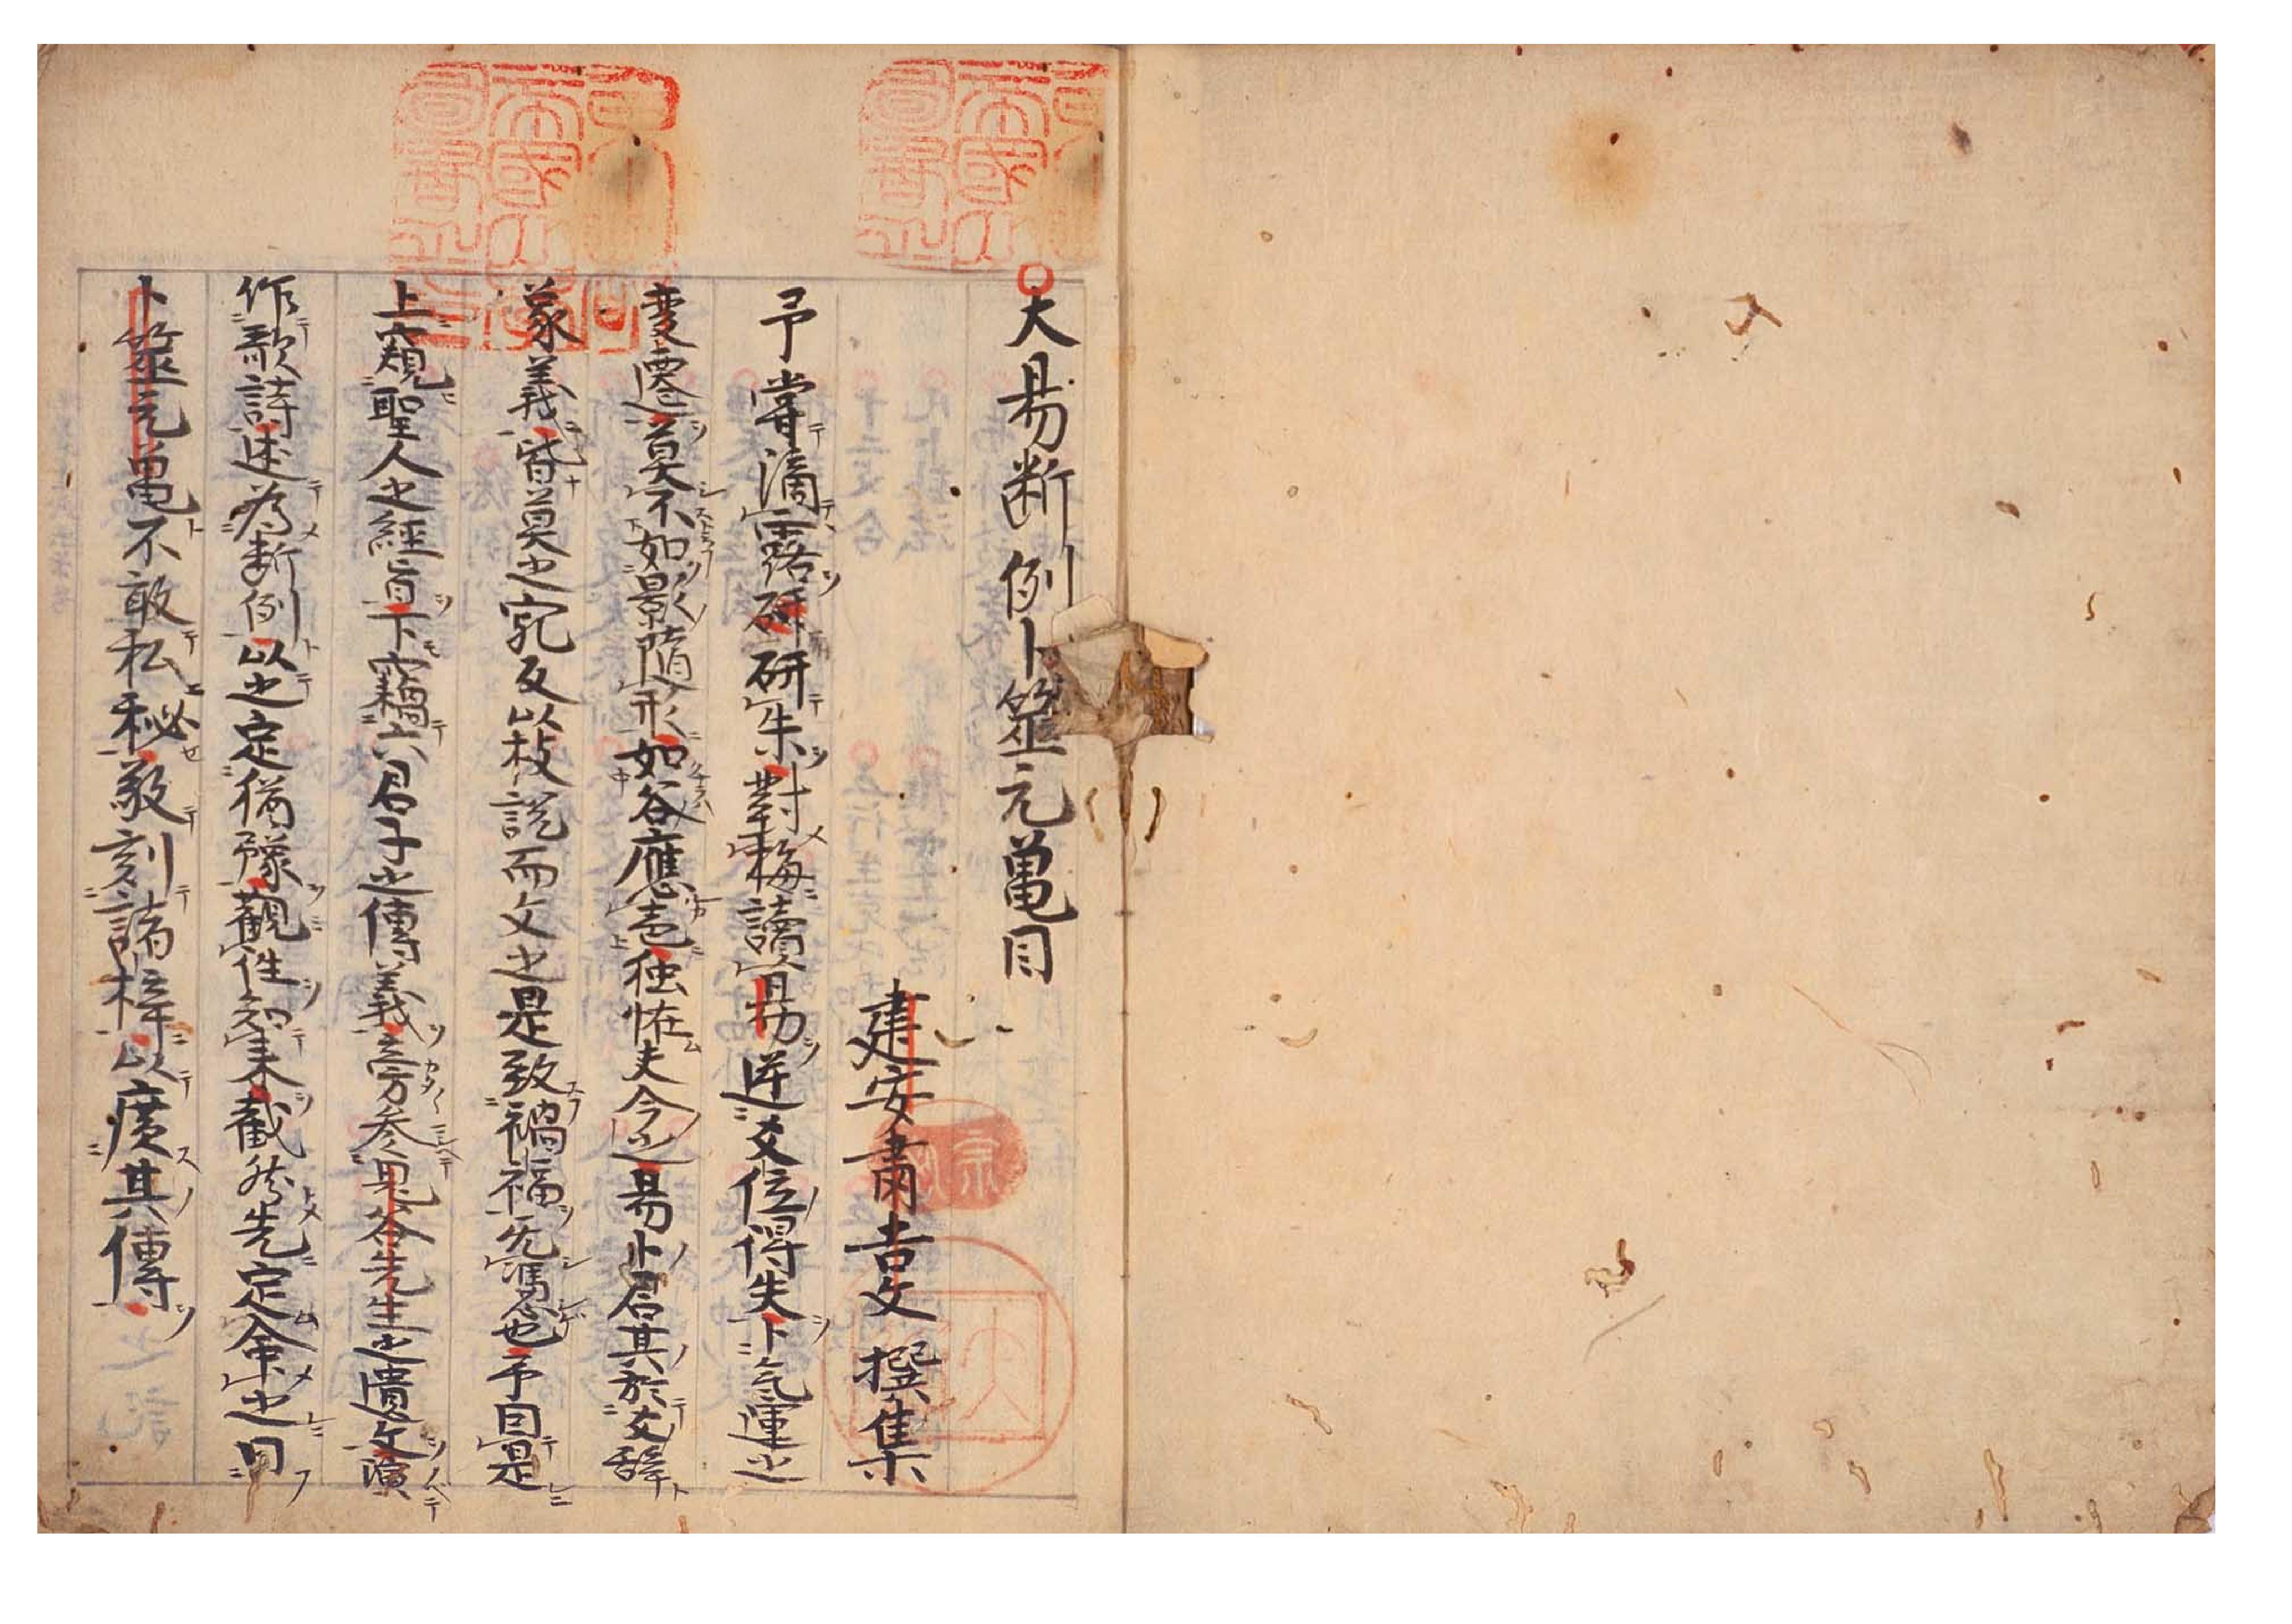 大易断例卜筮元亀目
建安蕭吉文撰集
予嘗滴露研朱對梅讀易逆爻位得失卜氣運之
變遷莫不如影隨形如谷應声独恠夫今之易卜君其於爻辞
彖義昏莫之究反以枝說而文之是致禍福无馮也予因是
上窺聖人之經旨下竊六君子之傳義旁参鬼谷先生之遺文演
作歌詩述為断例以之定猶豫觀往知来截然先定命之曰
卜筮元亀不敢私秘敬刻諸梓以廣其傳